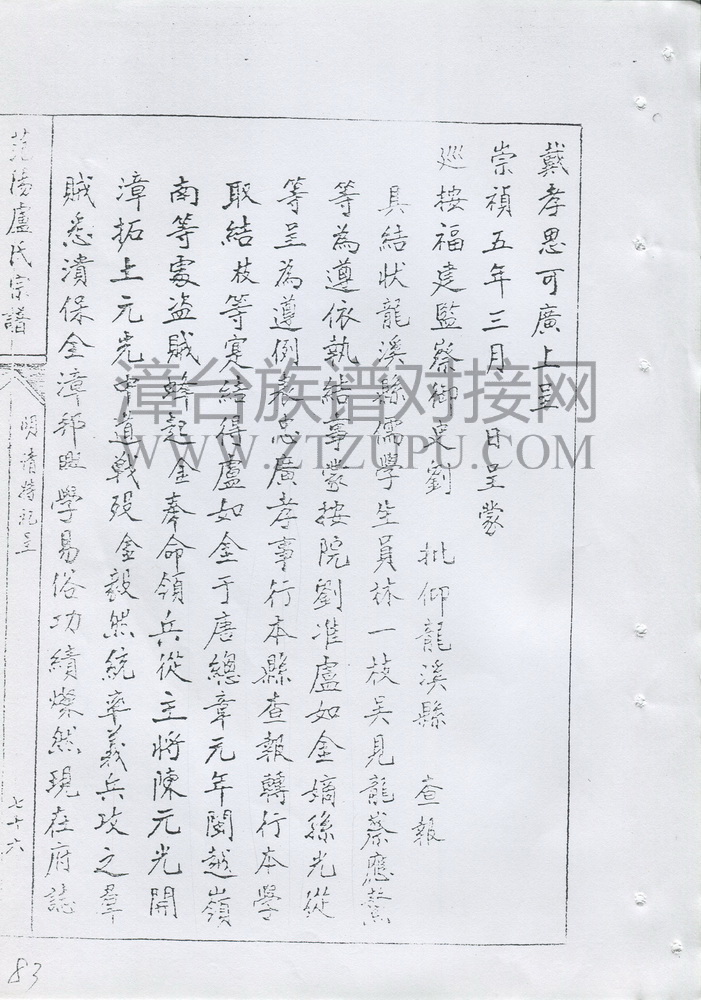 戴孝思可廣上呈
崇禎五年三月 日呈蒙
巡按福建監察御史劉 批仰龍溪縣 查報
具結狀龍溪縣儒學生員林一枝吳見龍蔡應
等為遵依執結事蒙按院劉准盧如金嫡孫光從
等呈為遵例表忠廣孝事行本縣查報轉行本學
取結枝等寔結得盧如金于唐總章元年閩越嶺
南等處盜賊蜂起金奉命領兵從主將陳元光開
漳拓土元光中道戰歿金毅然統率義兵攻之羣
賊悉潰保全漳邦興學易俗功績燦然現在府誌
范陽盧氏宗譜
明清特祀呈
七十六
83
漳台族谱对接网
WWW.ZTZUPU.COM